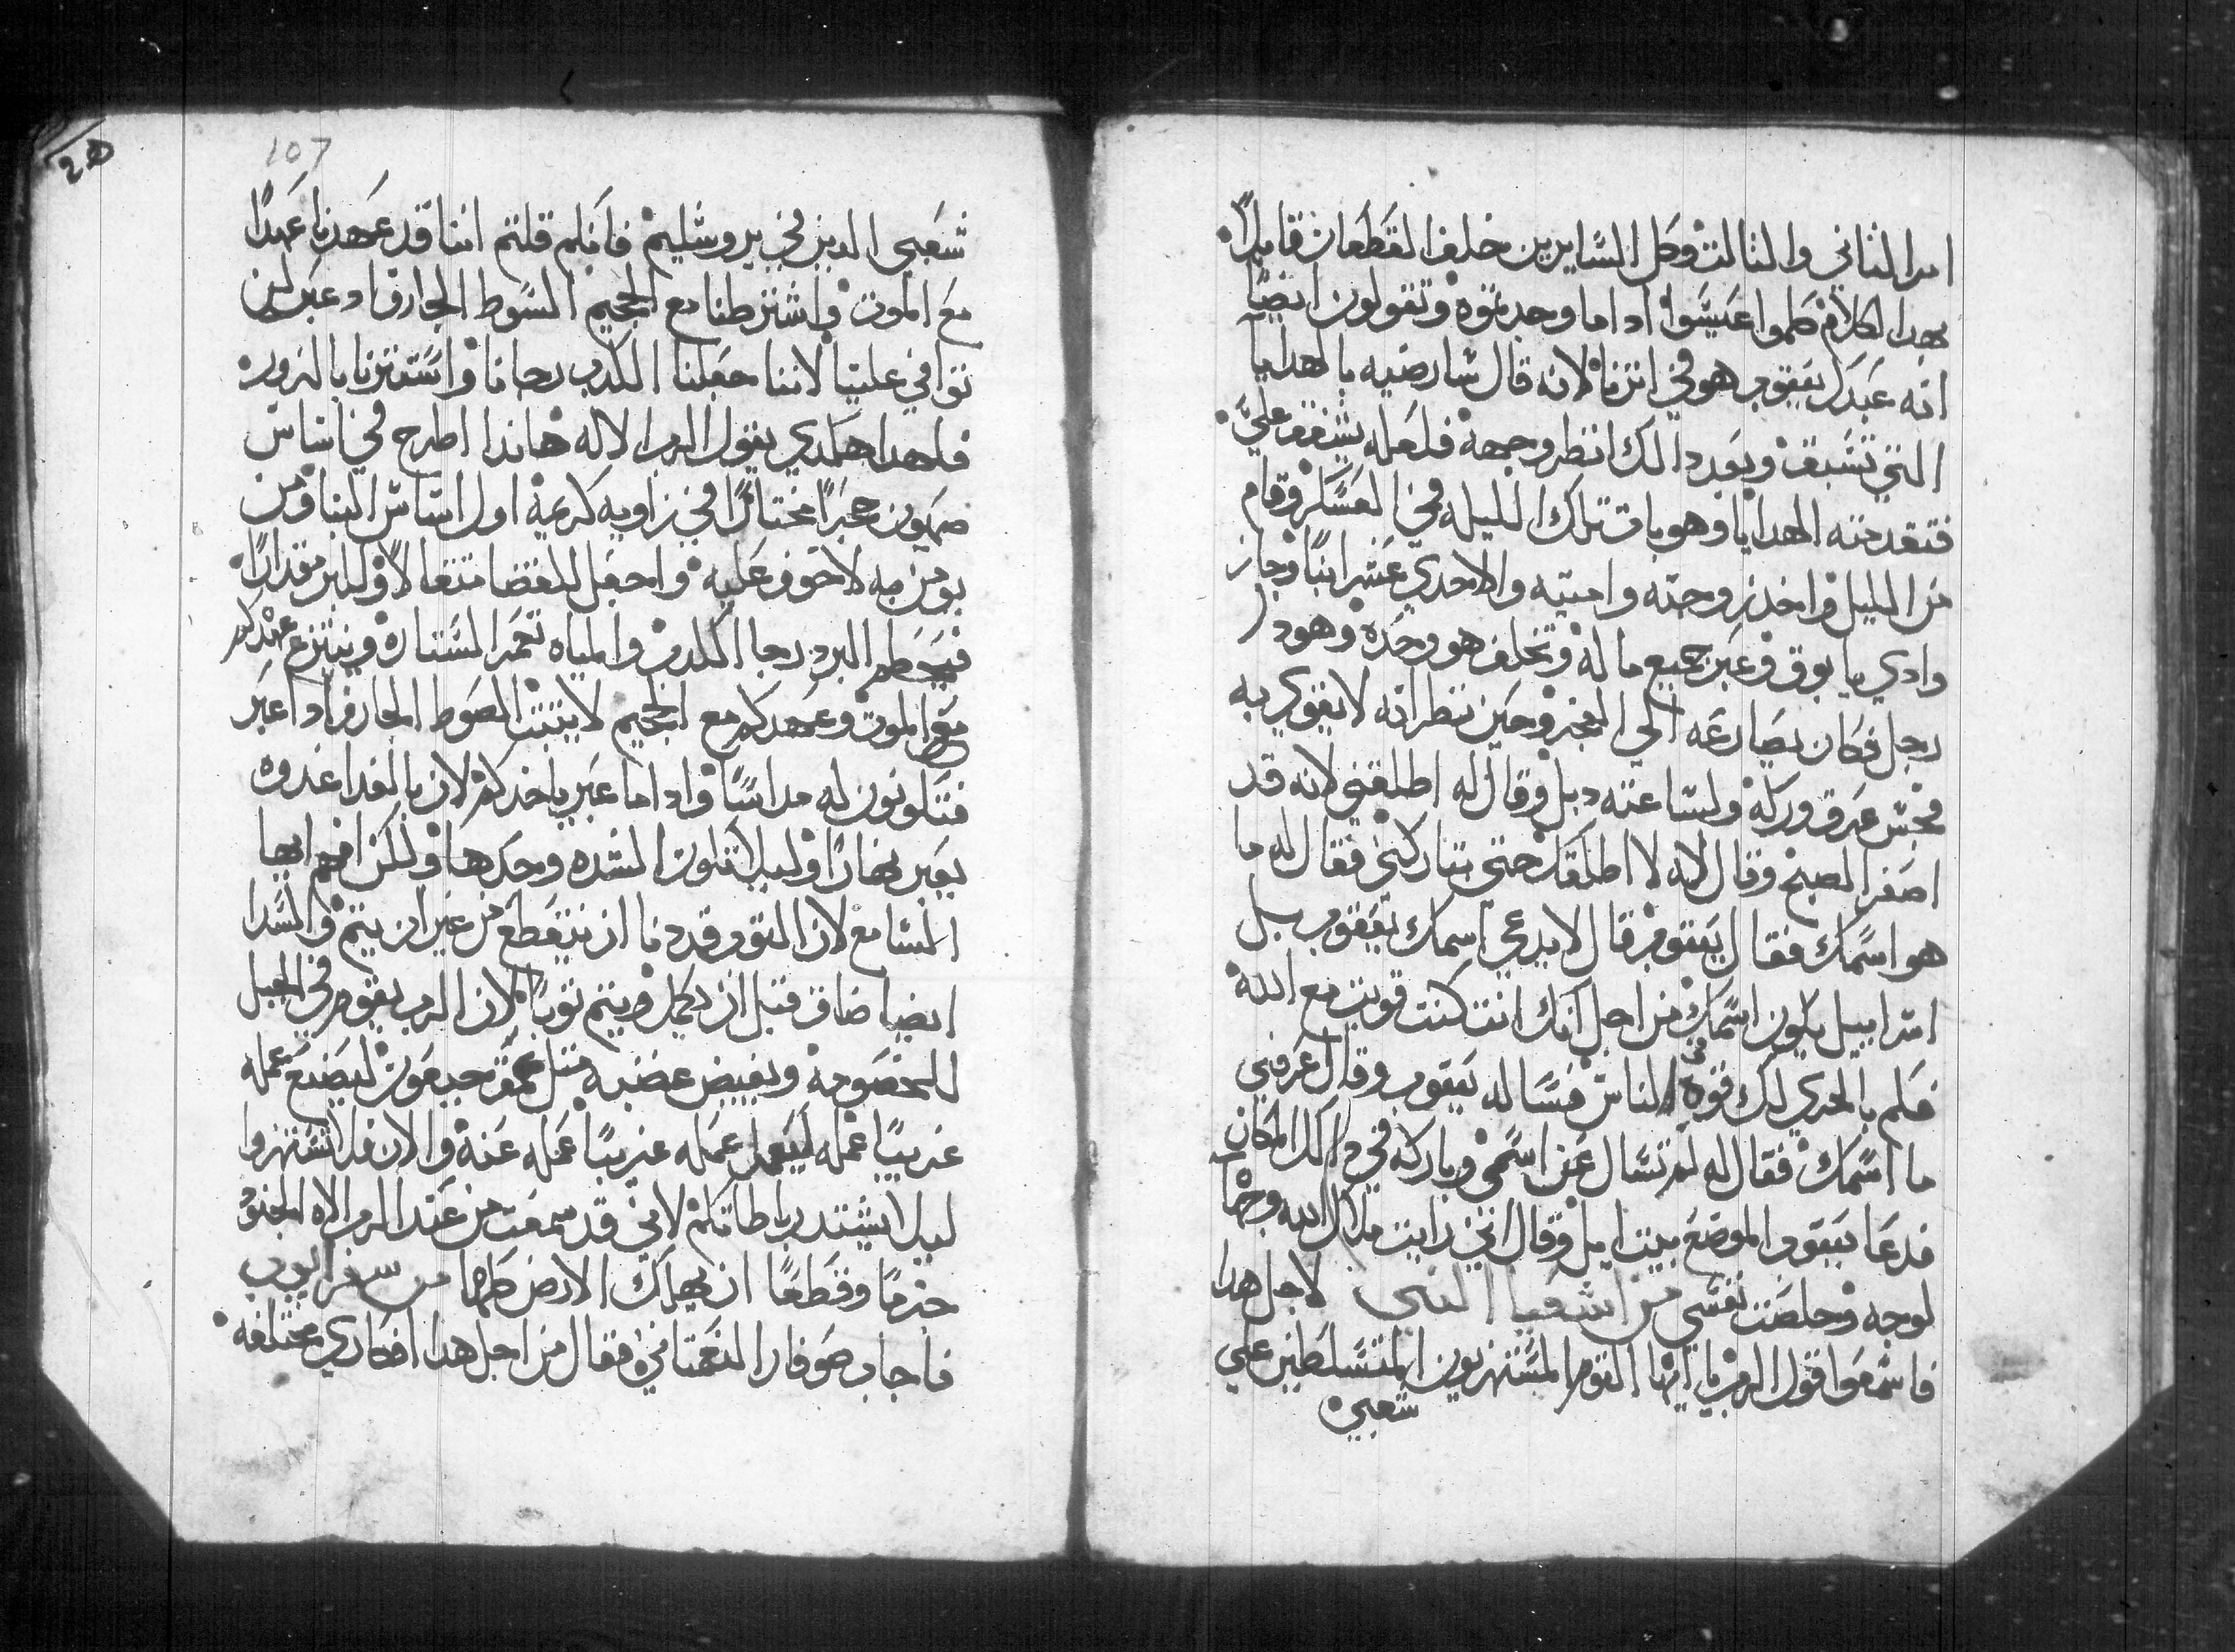 امر الثاني والثالث وكل السايرين خلف القطعان قايلاً
بهدا الكلام كلموا عيسوا ادا ما وجدتموه وتقولون ايضًا
انه عبدك يعقوب هو في اثرنا لانه قال سارضيه بالهدايا
التي تسبق وبعد دالك انظر وجهه فلعله يشفق عليّ
فتقدمته الهدايا وهو بات تلك الليله في العسكر وقام
من الليل واخد زوجته وامتيه والاحدي عشر ابنًا وجاز
وادي يابوق وعبر جميع ماله وتخلف هو وحده وهودا
رجل فكان يصارعه الي الفجر وحين نظر انه لا يقوي به
فجس عرق وركه ولساعته دبل وقال له اطلقني لانه قد
اصفر الصبح وقال له لا اطلقك حتي تباركني فقال له ما
هو اسمك فقال يعقوب قال لا يدعي اسمك يعقوب بل
اسراييل يكون اسمك من اجل انك انت كنت قويت مع الله
فكم بالحري لك قوه في الناس فساله يعقوب وقال عرفني
ما اسمك فقال له لم تسال عن اسمي وباركه في دالك المكان
فدعا يعقوب الموضع بيت ايل وقال انني رايت ملاك الله وجهًا
لوجه وخلصت نفسي من اشعيا النبي لاجل هدا
فاسمعوا قول الرب يا ايها القوم المستهزيون المتسلطين علي
شعبي
107
شعبي الدين في يروشليم فانكم قلتم اننا قد عهدنا عهدًا
مع الموت واشترطنا مع الجحيم السوط الجارف اد عبر لن
توافي علينا لاننا جعلنا الكدب رجانا واستترنا بالزوره
فلهدا هكدي يقول الرب الاله هاندا اطرح في اساس
صهيون حجرًا مختارًا في زاويه كريمة اول اساس البنا ومن
يومن به لا خوف عليه واجعل للقضا مثقالاً وللبر مقدارًا
فيحطم البرد رجا الكدب والمياه تغمر الستاره وينتزع عهدكم
مع الموت وعهدكم مع الجحيم لا يثبت الصوط الجارف ادا عبر
فتكونون له مداسًا وادا ما عبر ياخدكم لان بالغدا غدوه
يعبر نهارًا وليلا تكون الشده وحدها وللكن افهم ايها
السامع لان القوم قد دنا ان ينقطع من غير ان يتم والسدا
ايضا ضاق قبل ان يكمل ويتم توبًا لان الرب يقوم في الجبل
للخصومة ويفيض غضبه مثل عمق جبعون ليصنع عمله
غريبًا عمله ليعمل عمله غريبًا عمله عنه والان فلا تستهزوا
ليلا يشتد رباطاتكم لاني قد سمعت من عند الرب الاه الجنود
جزمًا وقطعًا ان يهلك الارض كلها من سفر ايوب
فاجاب صوفار النعماني وقال من اجل هدا افكاري مختلفه